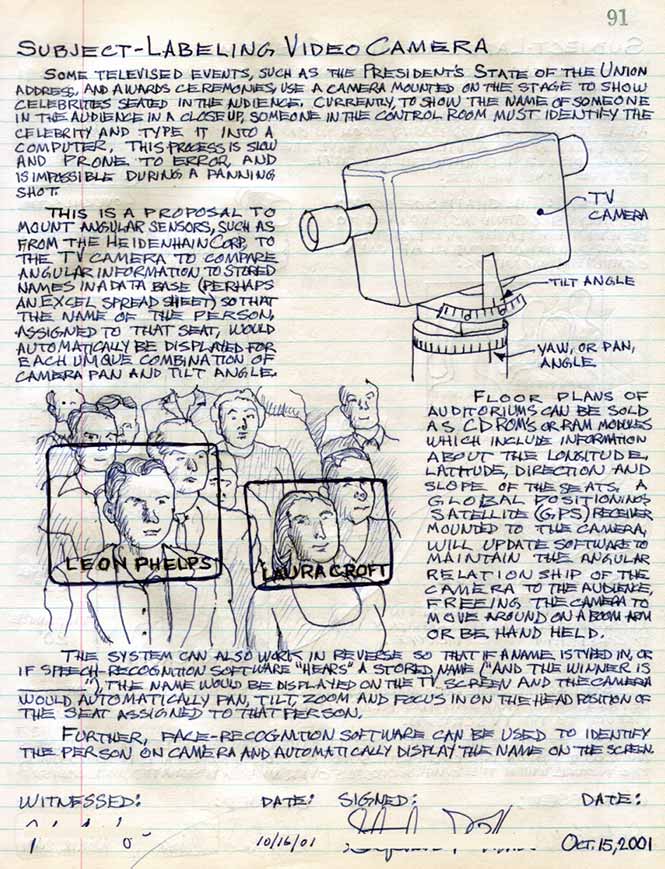 91
SUBJECT-LABELING VIDEO CAMERA
SOME TELEVISED EVENTS, SUCH AS THE PRESIDENT'S STATE OF THE UNION
ADDRESS, AND AWARDS CEREMONIES, USE A CAMERA MOUNTED ON THE STAGE TO SHOW
CELEBRITIES SEATED IN THE AUDIENCE. CURRENTLY, TO SHOW THE NAME OF SOMEONE
IN THE AUDIENCE IN A CLOSEUP, SOMEONE IN THE CONTROL ROOM MUST IDENTIFY THE
CELEBRITY AND TYPE IT INTO A
COMPUTER. THIS PROCESS IS SLOW
AND PRONE TO ERROR, AND
IS IMPOSSIBLE DURING A PANNING
SHOT.
THIS IS A PROPOSAL TO
MOUNT ANGULAR SENSORS, SUCH AS
FROM THE HEIDENHAIN CORP, TO
THE TV CAMERA TO COMPARE
ANGULAR INFORMATION TO STORED
NAMES IN A DATA BASE (PERHAPS
AN EXCEL SPREAD SHEET) SO THAT
THE NAME OF THE PERSON,
ASSIGNED TO THAT SEAT, WOULD
AUTOMATICALLY BE DISPLAYED FOR
EACH UNIQUE COMBINATION OF
CAMERA PAN AND TILT ANGLE.
TV
CAMERA
TILT ANGLE
YAW, OR PAN,
ANGLE
FLOOR PLANS OF
AUDITORIUMS CAN BE SOLD
AS CD ROM'S OR RAM MODULES
WHICH INCLUDE INFORMATION
ABOUT THE LONGITUDE,
LATITUDE, DIRECTION AND
SLOPE OF THE SEATS. A
GLOBAL POSITIONING
SATELLITE (GPS) RECEIVER
MOUNTED TO THE CAMERA,
WILL UPDATE SOFTWARE TO
MAINTAIN THE ANGULAR
RELATIONSHIP OF THE
CAMERA TO THE AUDIENCE,
FREEING THE CAMERA TO
MOVE AROUND ON A BOOM ARM
OR BE HAND HELD.
LEON PHELPS
LAURA CROFT
THE SYSTEM CAN ALSO WORK IN REVERSE SO THAT IF A NAME IS TYPED IN, OR
IF SPEECH-RECOGNITION SOFTWARE "HEARS" A STORED NAME ("AND THE WINNER IS
________"), THE NAME WOULD BE DISPLAYED ON THE TV SCREEN AND THE CAMERA
WOULD AUTOMATICALLY PAN, TILT, ZOOM AND FOCUS IN ON THE HEAD POSITION OF
THE SEAT ASSIGNED TO THAT PERSON.
FURTHER, FACE-RECOGNITION SOFTWARE CAN BE USED TO IDENTIFY
THE PERSON ON CAMERA AND AUTOMATICALLY DISPLAY THE NAME ON THE SCREEN.
WITNESSED: DATE: SIGNED: DATE:
10/16/01 OCT. 15, 2001